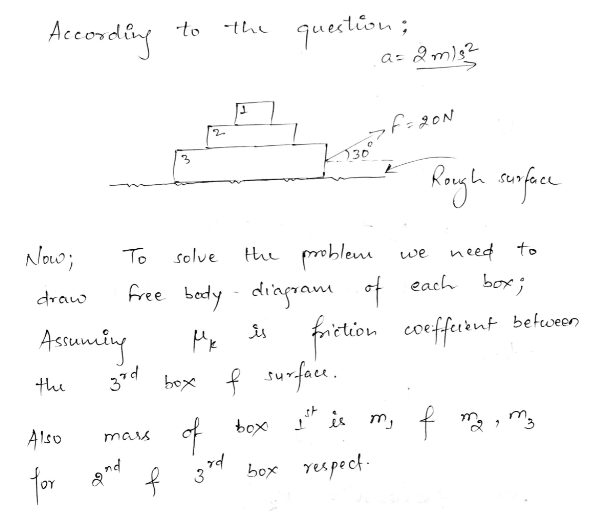 According to the question;
a = 2 m/s²
1
2
F = 20N
3
30°
Rough surface
Now; To solve the problem we need to
draw free body-diagram of each box;
Assuming μk is friction coefficient between
the 3rd box & surface.
Also mass of box 1st is m1 & m2, m3
for 2nd & 3rd box respect.